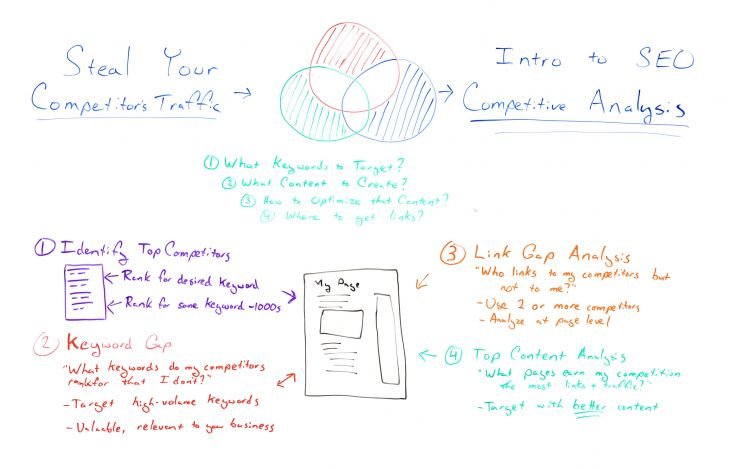 Steal Your
Competitor's Traffic
Intro to SEO
Competitive Analysis
① What Keywords to Target?
② What Content to Create?
③ How to Optimize that Content?
④ Where to get links?
① Identify Top Competitors
Rank for desired keyword
Rank for same keyword ~1000s
② Keyword Gap
"What keywords do my competitors
rank for that I don't?"
- Target high-volume keywords
- Valuable, relevant to your business
My Page
③ Link Gap Analysis
"Who links to my competitors but
not to me?"
- Use 2 or more competitors
- Analyze at page level
④ Top Content Analysis
"What pages earn my competition
the most links + traffic?"
- Target with better content